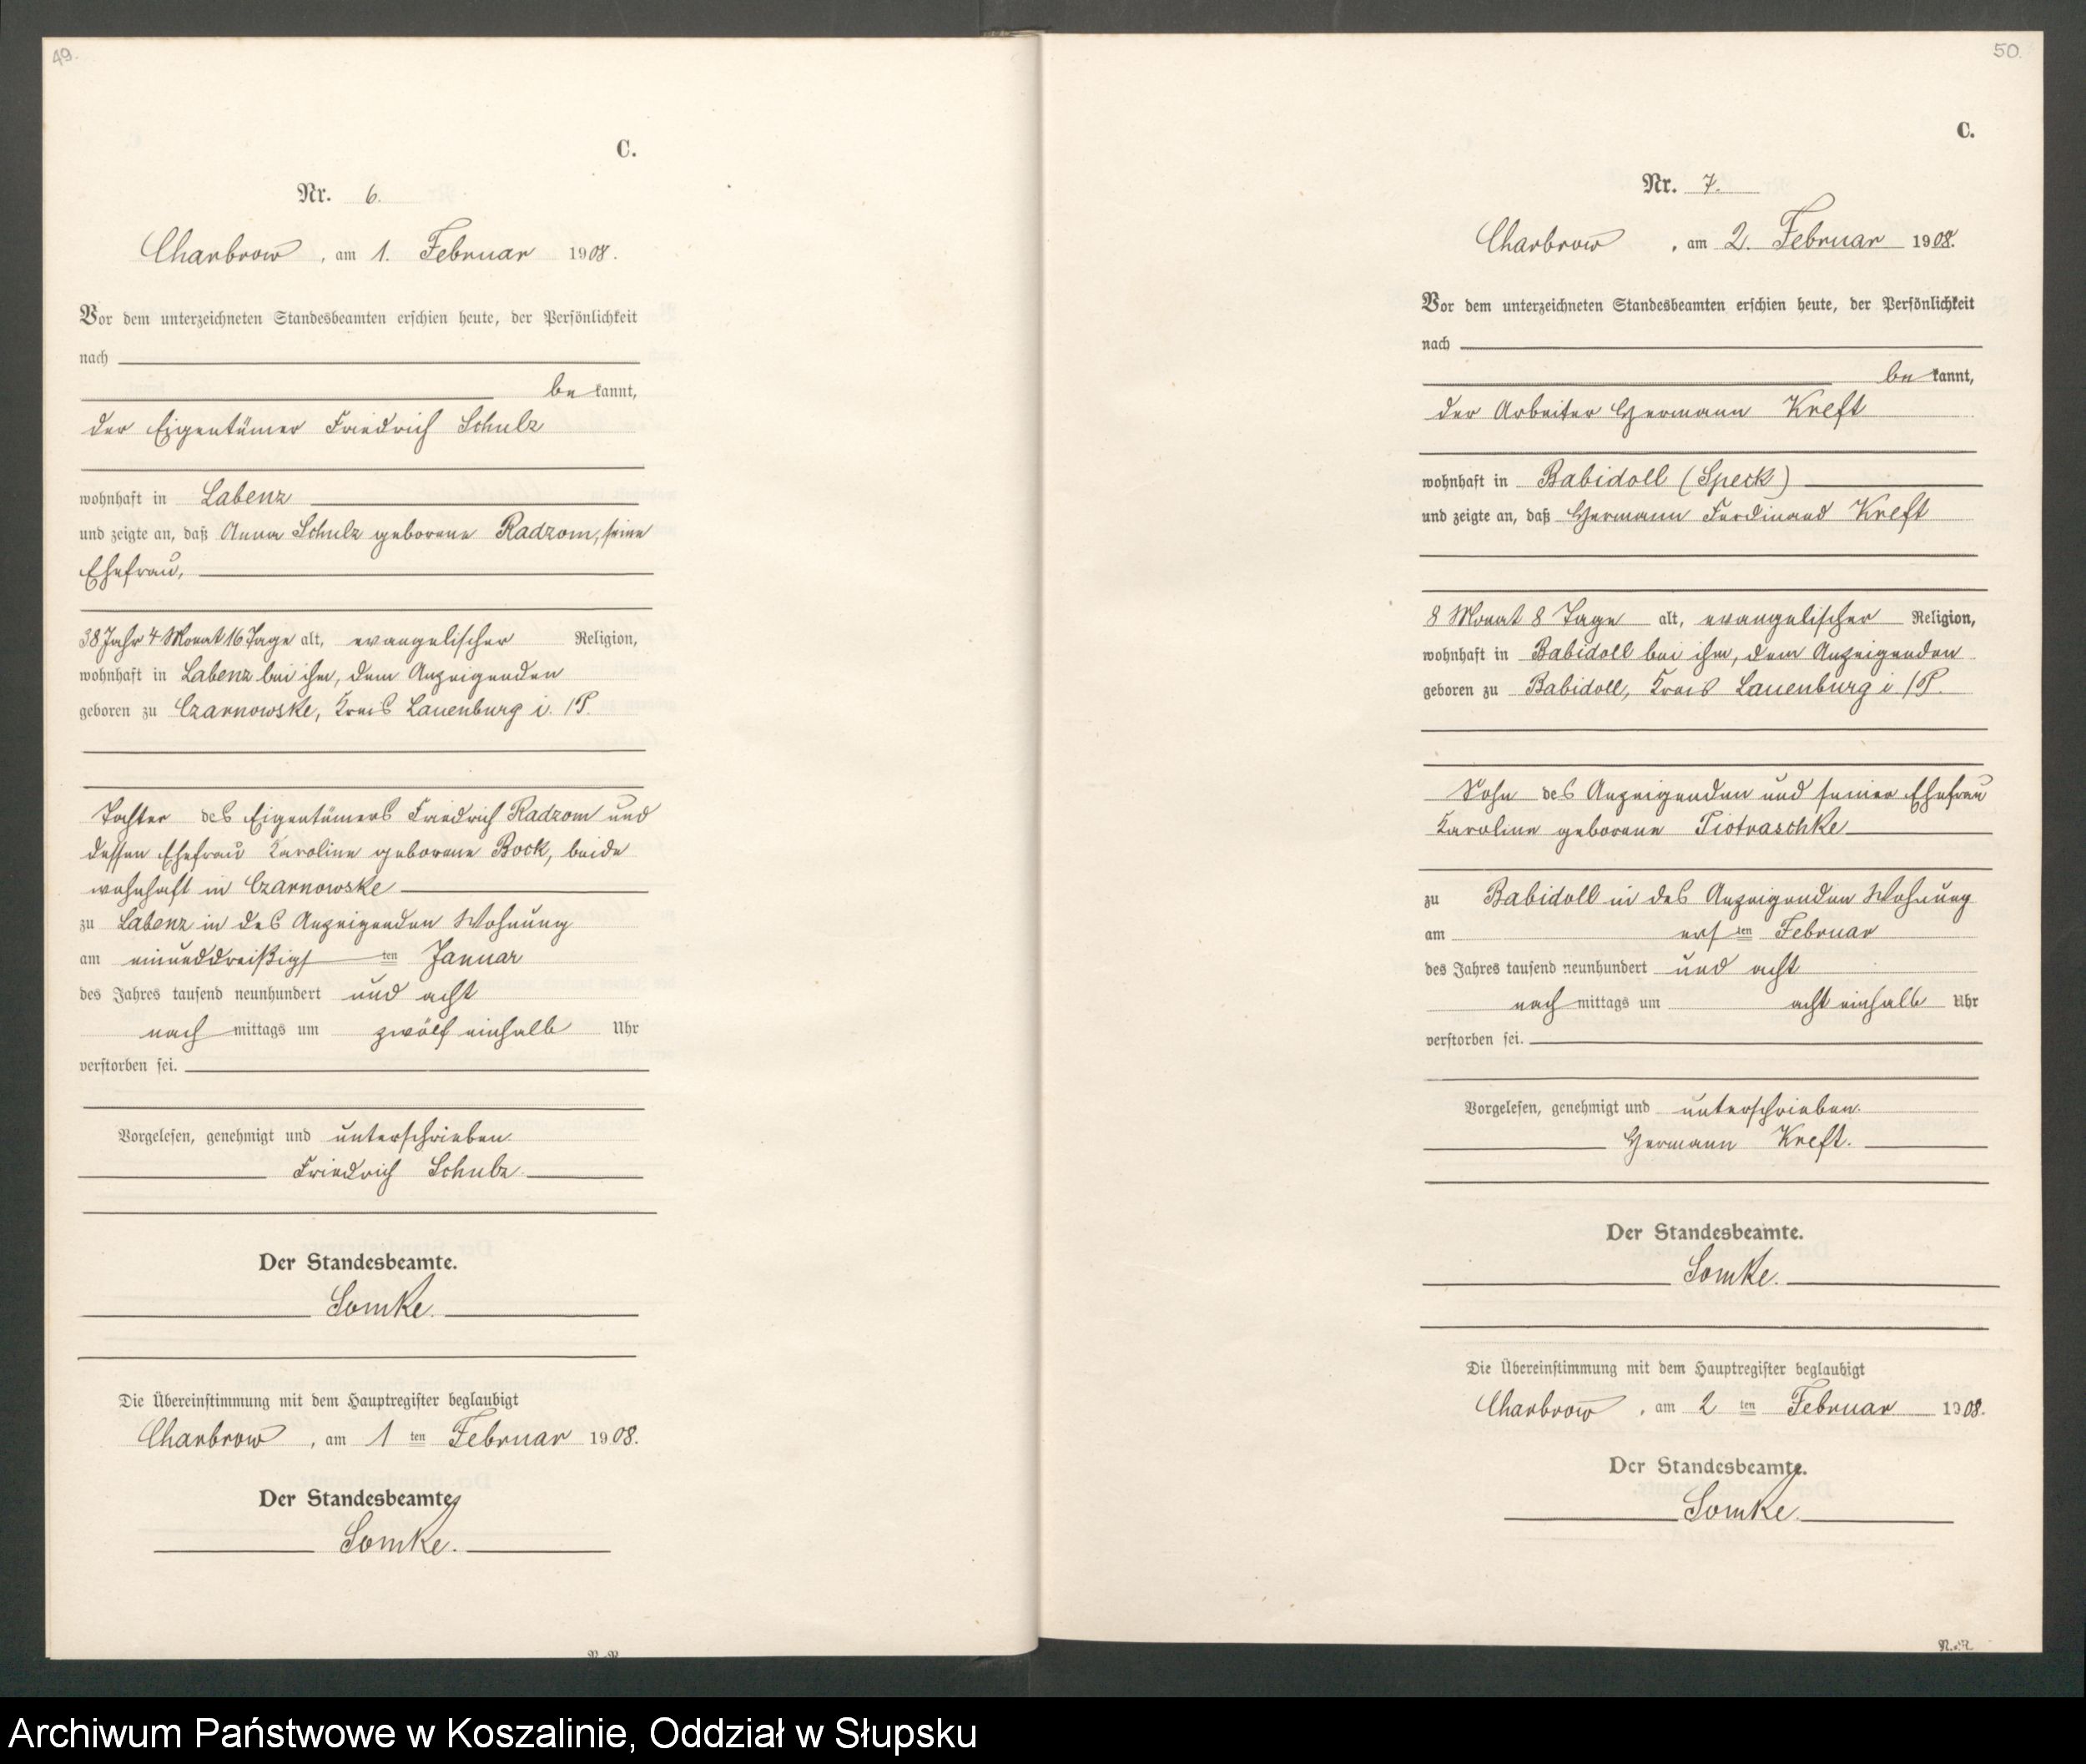 49.
C.
Nr. 6.
Charbrow, am 1. Februar 1908.
Vor dem unterzeichneten Standesbeamten erschien heute, der Persönlichkeit
nach
be kannt,
der Eigentümer Friedrich Schulz
wohnhaft in Labenz
und zeigte an, daß Anna Schulz geborene Radzom, seine
Ehefrau,
38 Jahr 4 Monat 16 Tage alt, evangelischer Religion,
wohnhaft in Labenz bei ihm, dem Anzeigenden
geboren zu Czarnowske, Kreis Lauenburg i. /P.
Tochter des Eigentümers Friedrich Radzom und
dessen Ehefrau Karoline geborene Bock, beide
wohnhaft in Czarnowske
zu Labenz in des Anzeigenden Wohnung
am einunddreißigsten Januar
des Jahres tausend neunhundert und acht
nach mittags um zwölf einhalb Uhr
verstorben sei.
Vorgelesen, genehmigt und unterschrieben.
Friedrich Schulz.
Der Standesbeamte.
Somke.
Die Übereinstimmung mit dem Hauptregister beglaubigt
Charbrow, am 1 ten Februar 1908.
Der Standesbeamte
Somke.
50.
C.
Nr. 7.
Charbrow, am 2. Februar 1908.
Vor dem unterzeichneten Standesbeamten erschien heute, der Persönlichkeit
nach
be kannt,
der Arbeiter Hermann Kreft
wohnhaft in Babidoll (Speck)
und zeigte an, daß Hermann Ferdinand Kreft
8 Monat 8 Tage alt, evangelischer Religion,
wohnhaft in Babidoll bei ihm, dem Anzeigenden
geboren zu Babidoll, Kreis Lauenburg i /P.
Sohn des Anzeigenden und seiner Ehefrau
Karoline geborene Piotraschke
zu Babidoll in des Anzeigenden Wohnung
am ersten Februar
des Jahres tausend neunhundert und acht
nach mittags um acht einhalb Uhr
verstorben sei.
Vorgelesen, genehmigt und unterschrieben.
Hermann Kreft.
Der Standesbeamte.
Somke.
Die Übereinstimmung mit dem Hauptregister beglaubigt
Charbrow, am 2 ten Februar 1908.
Der Standesbeamte.
Somke.
Archiwum Państwowe w Koszalinie, Oddział w Słupsku